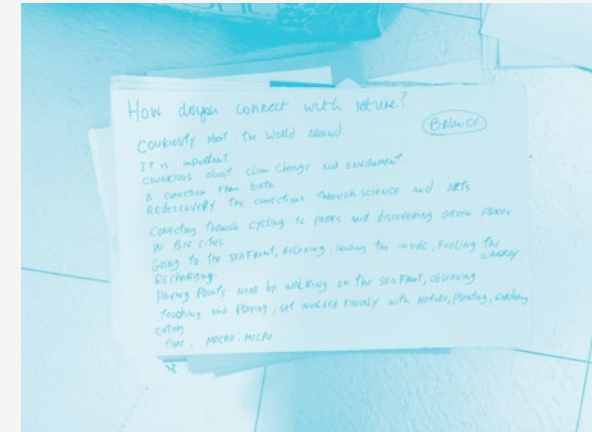 How do you connect with nature?
BALANCE
COURIOSITY About the WORLD AROUND
IT IS important
COUNCIOUS about Clim Change and ENVIRONMENT
A conection From birth
REDISCOVERY the conections through SCIENCE and ARTS
Conecting Through cycling to PARKS and discovering GREEN PLACES
IN BIG CITIES
Going to the SEAFRONT, RELAXING, the , FEELING THE
ENERGY
RECHARGING.
Having Plants NEAR by WALKING ON the SEAFRONT, OBSERVING
Touching and Playing, GET INVOLVED with NATURE, Planting,
EATING
time, MACRO-MICRO.